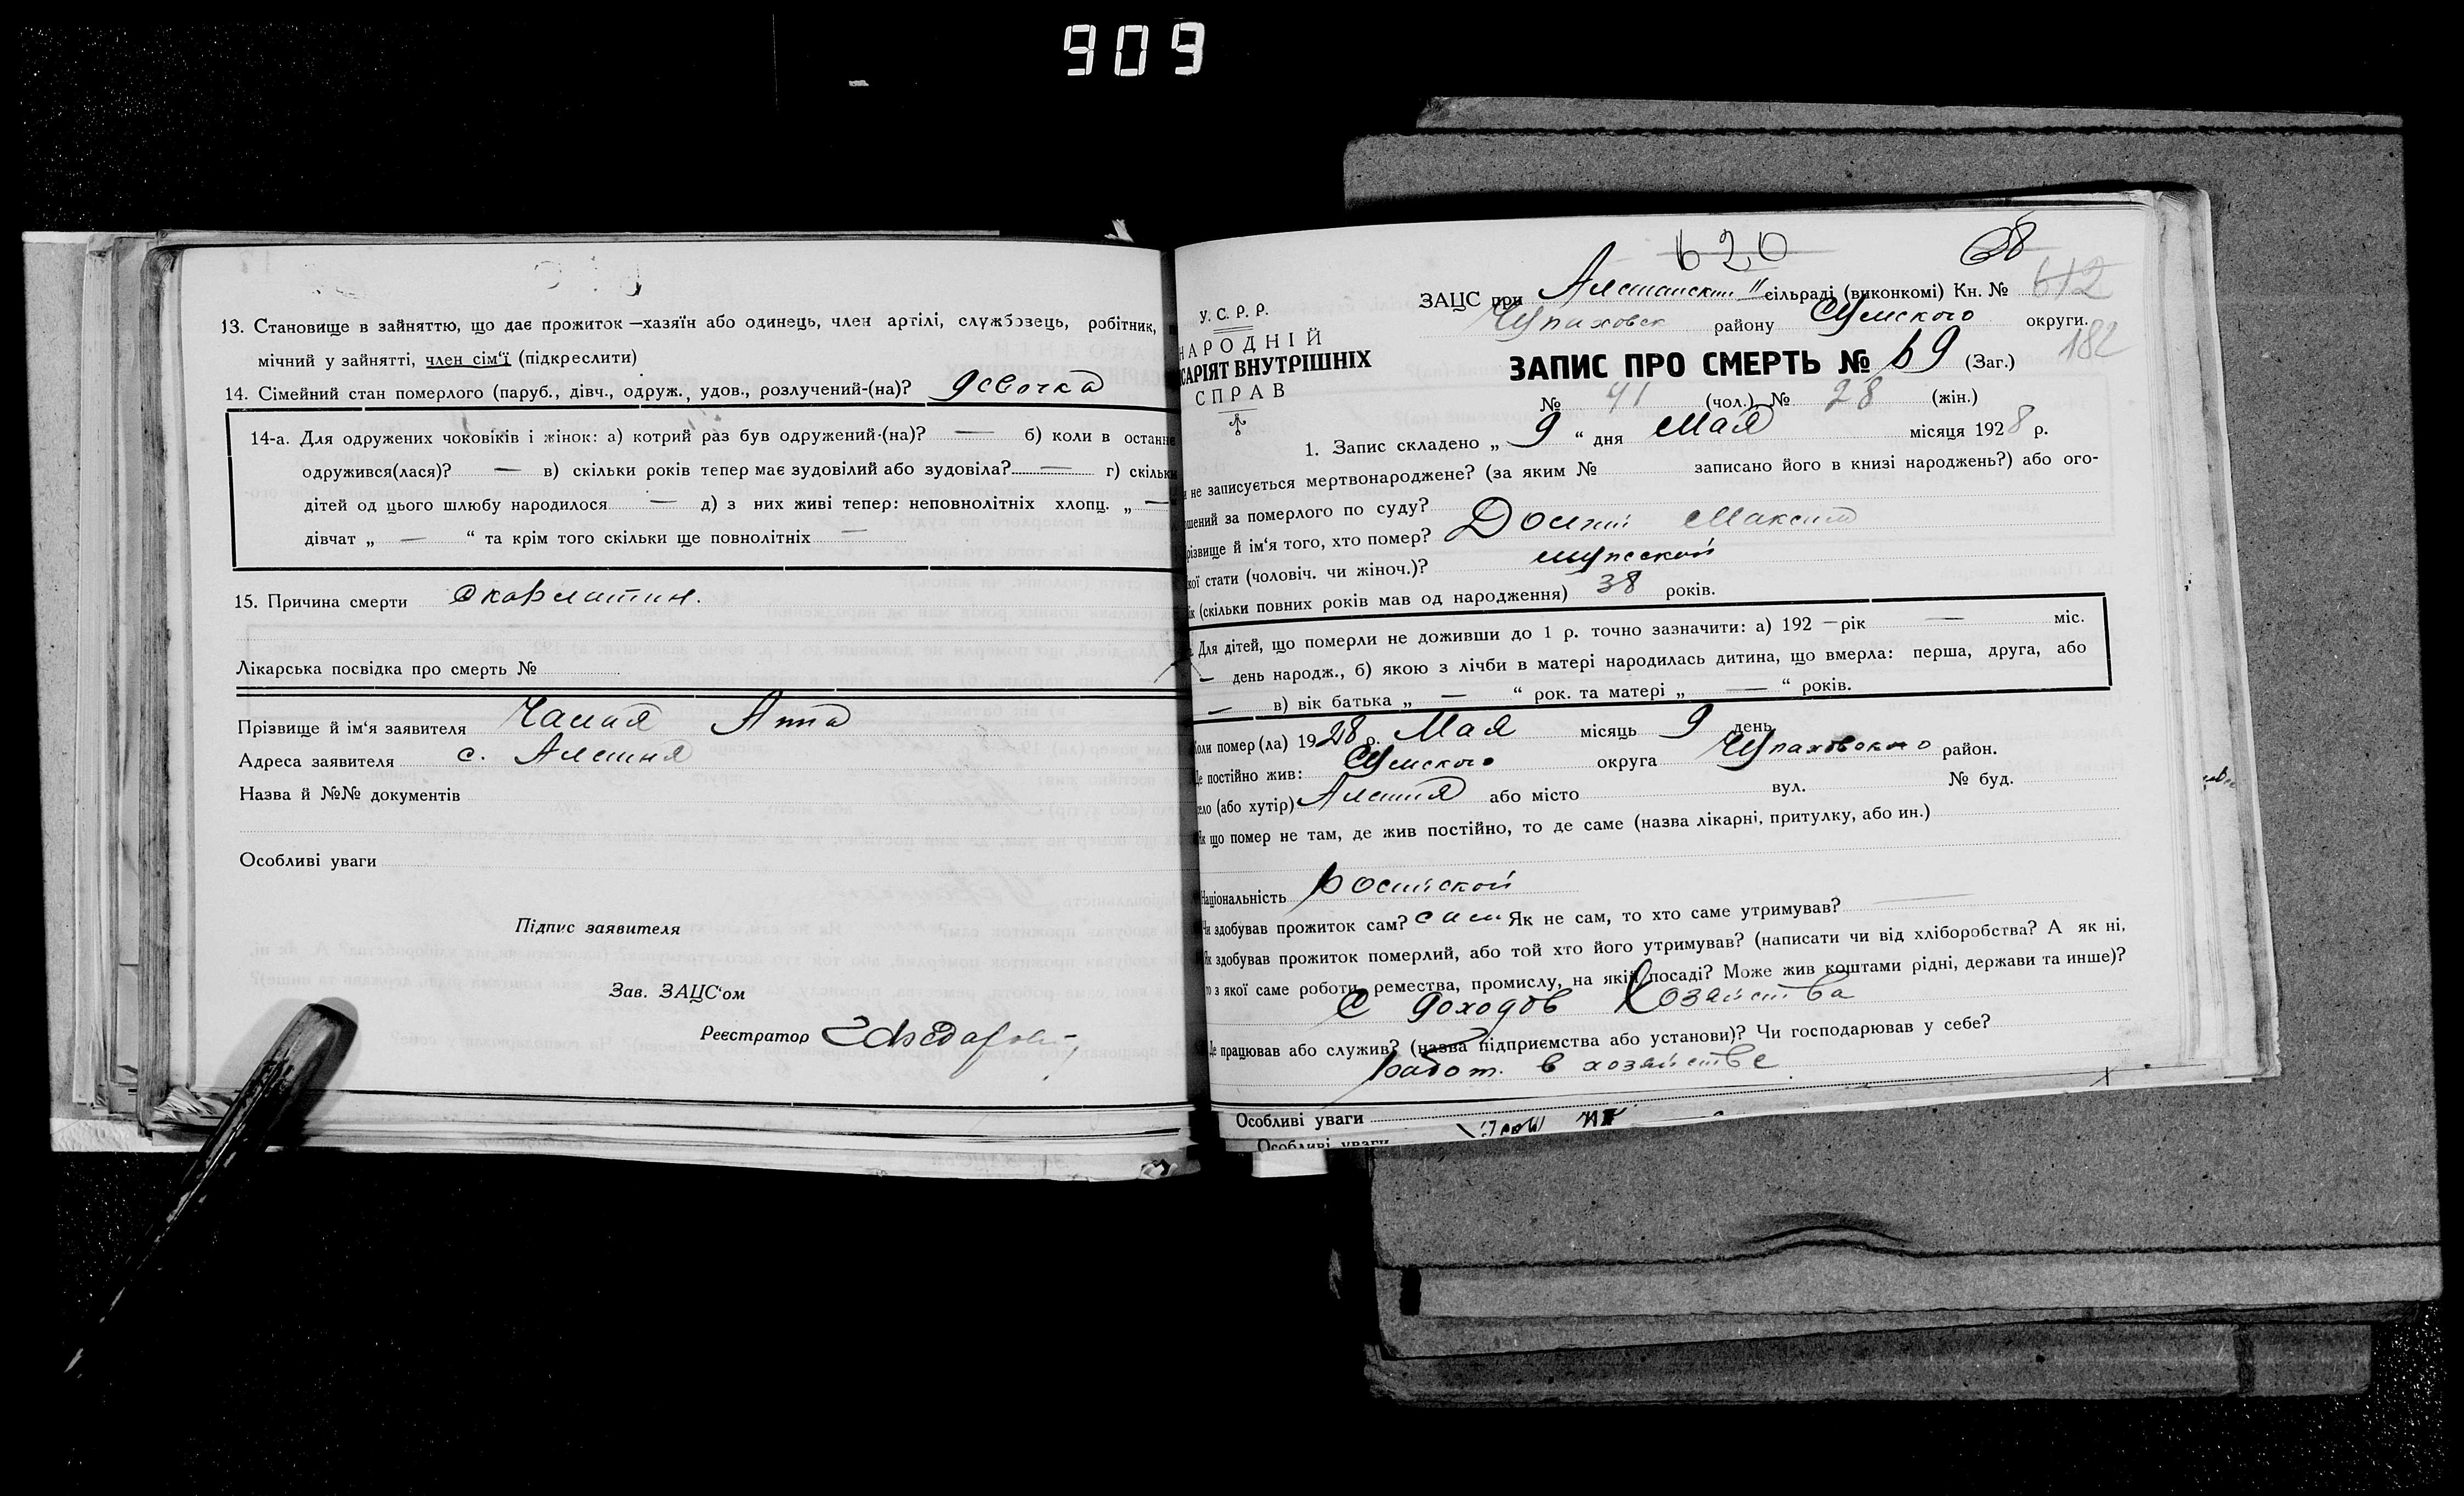 909
13. Становище в зайняттю, що дає прожиток—хазяїн або одинець, член артілі, службовець, робітник,
мічний у зайнятті, член сім'ї (підкреслити)
14. Сімейний стан померлого (паруб., дівч., одруж., удов., розлучений-(на)? девочка
14-а. Для одружених чоковіків і жінок: а) котрий раз був одружений-(на)? — б) коли в останнє
одружився(лася)? — в) скільки років тепер має зудовілий або зудовіла? — г) скільки
дітей од цього шлюбу народилося — д) з них живі тепер: неповнолітніх хлопц. „ —
дівчат „ — “ та крім того скільки ще повнолітніх —
15. Причина смерти Скарлатин.
Лікарська посвідка про смерть №
Прізвище й ім'я заявителя Чалая Анна
Адреса заявителя с. Алешня
Назва й №№ документів
Особливі уваги
Підпис заявителя
Зав. ЗАЦС'ом
Реєстратор
620 38
У. С. Р. Р.
НАРОДНІЙ
САРІЯТ ВНУТРІШНІХ
СПРАВ
ЗАЦС при Алешанским II сільраді (виконкомі) Кн. № 612
району Сумского округи.
182
ЗАПИС ПРО СМЕРТЬ № 69 (Заг.)
№ 41 (чол.) № 28 (жін.)
1. Запис складено „ 9 “ дня Мая місяця 1928 р.
не записується мертвонароджене? (за яким № записано його в книзі народжень?) або ого-
шений за померлого по суду?
різвище й ім'я того, хто помер? Максим
кої стати (чоловіч. чи жіноч.)? мужской
ік (скільки повних років мав од народження) 38 років.
Для дітей, що померли не доживши до 1 р. точно зазначити: а) 192 — рік — міс.
— день народж., б) якою з лічби в матері народилась дитина, що вмерла: перша, друга, або
— в) вік батька „ — “ рок. та матері „ — “ років.
Коли помер (ла) 1928 р. Мая місяць 9 день
Де постійно жив: Сумского округа район.
ело (або хутір) Алешня або місто вул. № буд.
Як що помер не там, де жив постійно, то де саме (назва лікарні, притулку, або ин.)
Національність Росийской
Чи здобував прожиток сам? сам Як не сам, то хто саме утримував? —
Як здобував прожиток померлий, або той хто його утримував? (написати чи від хліборобства? А як ні,
то з якої саме роботи, ремества, промислу, на якій посаді? Може жив коштами рідні, держави та инше)?
С доходов Хозяйства
Де працював або служив? (назва підприємства або установи)? Чи господарював у себе?
работ. в хозяйстве
Особливі уваги
Особливі уваги